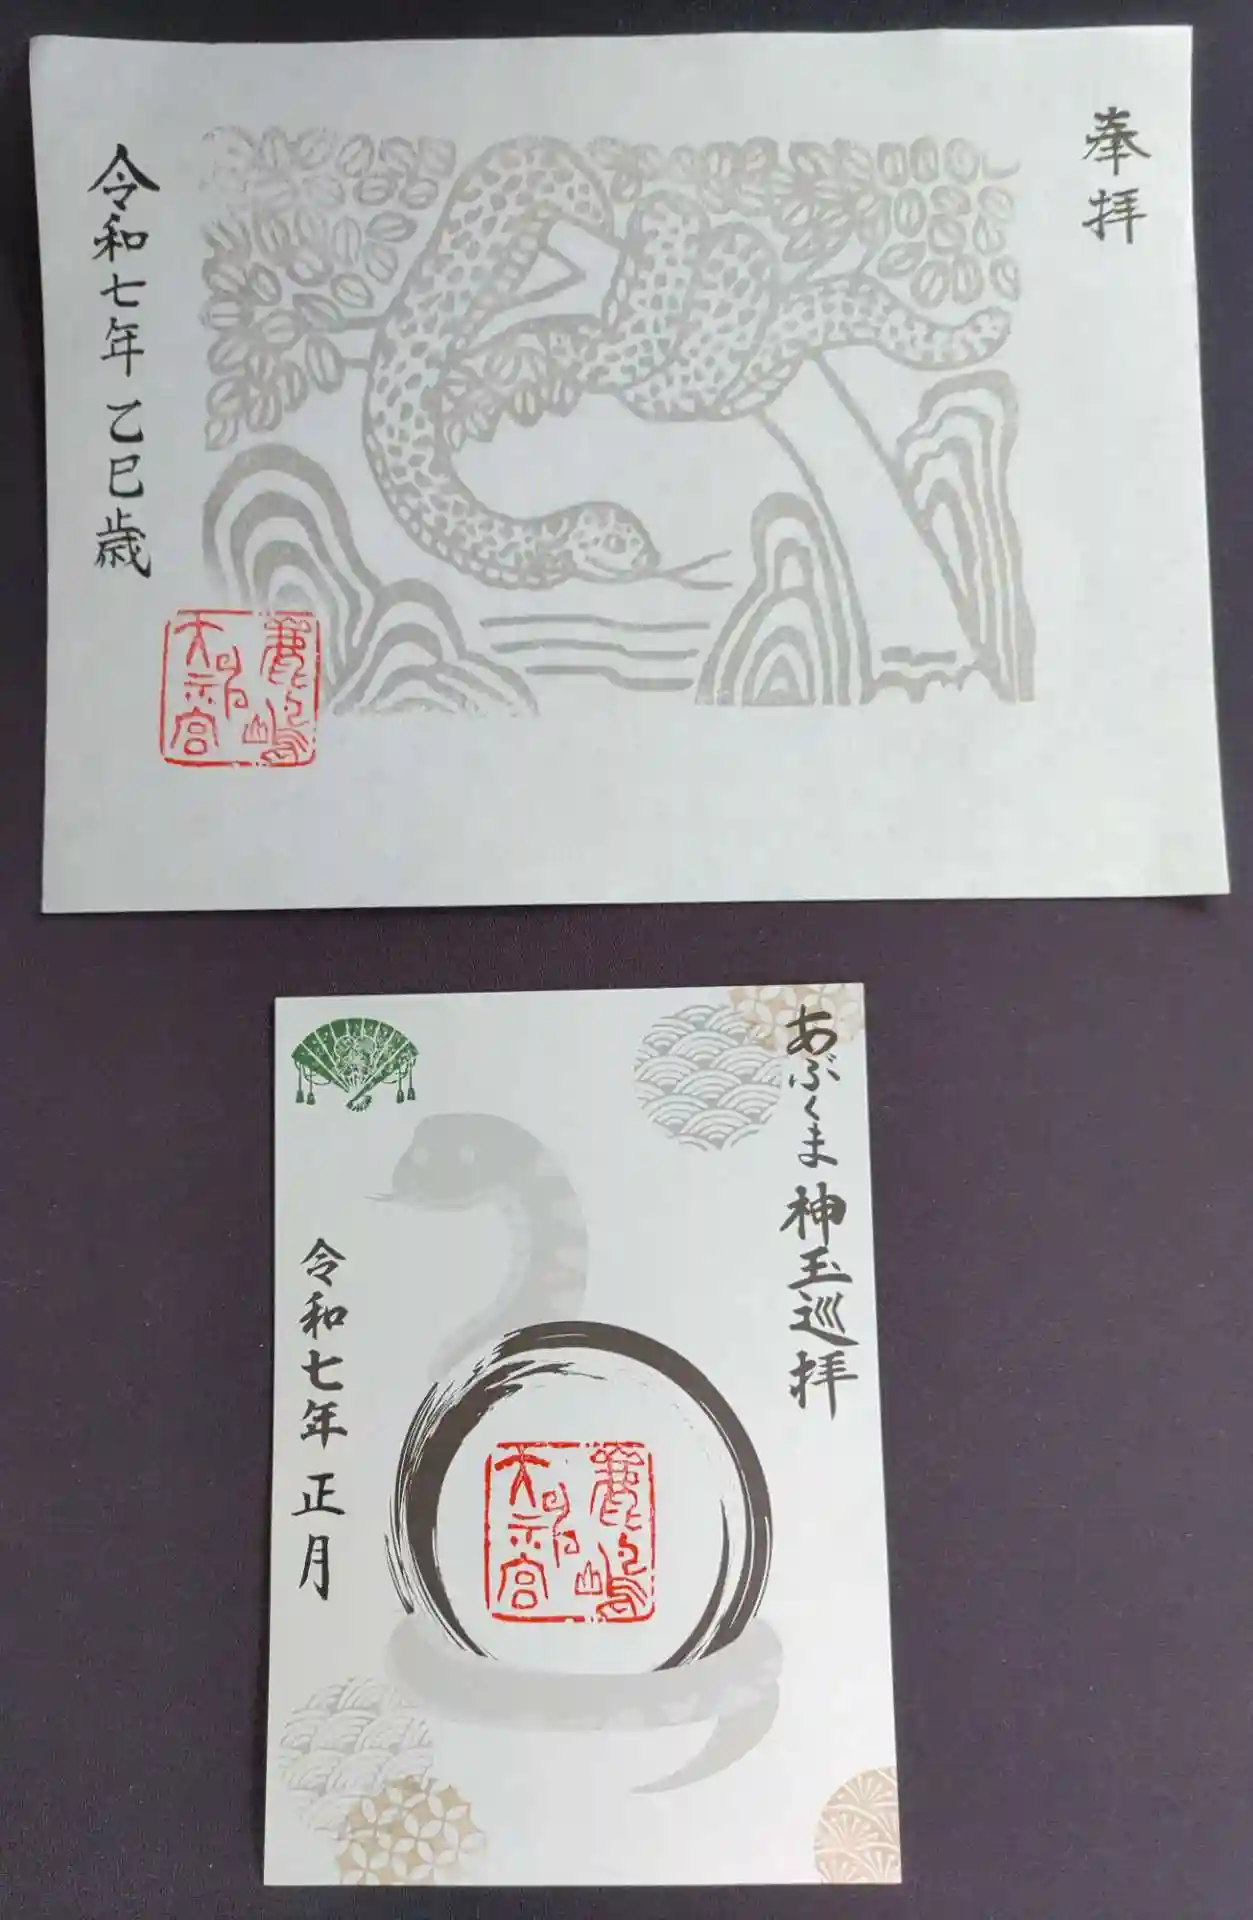 奉拝
令和七年 乙巳歳
鹿嶋
天神宮
あぶくま 神玉巡拝
令和七年 正月
鹿嶋
天神宮